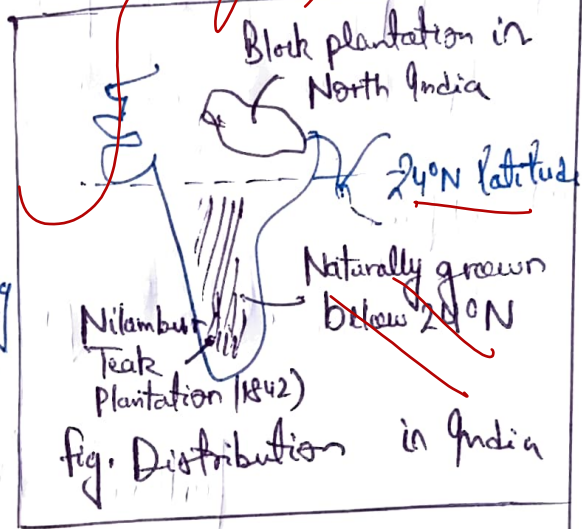 Block plantation in
North India
24°N latitude
Naturally grown
below 24°N
Nilambur
Teak
Plantation (1842)
fig. Distribution in India